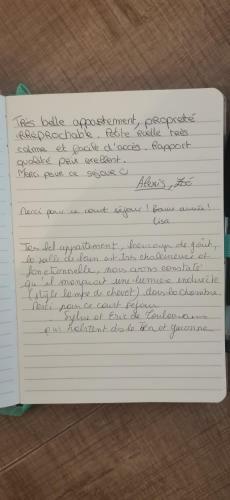 Très belle appartement, propreté
irréprochable. Petite ruelle très
calme et facile d'accès. Rapport
qualité prix excellent.
Merci pour ce séjour
Alexis, Zoé
Merci pour ce court séjour! Bonne année!
Lisa
Très bel appartement, beaucoup de goût,
la salle de bain est très chaleureuse et
fonctionnelle, nous avons constaté
qu'il manquait une lumière indirecte
(style lampe de chevet) dans la chambre.
Merci pour ce court séjour.
Sylvie et Eric de
qui habitent ds le et garonne